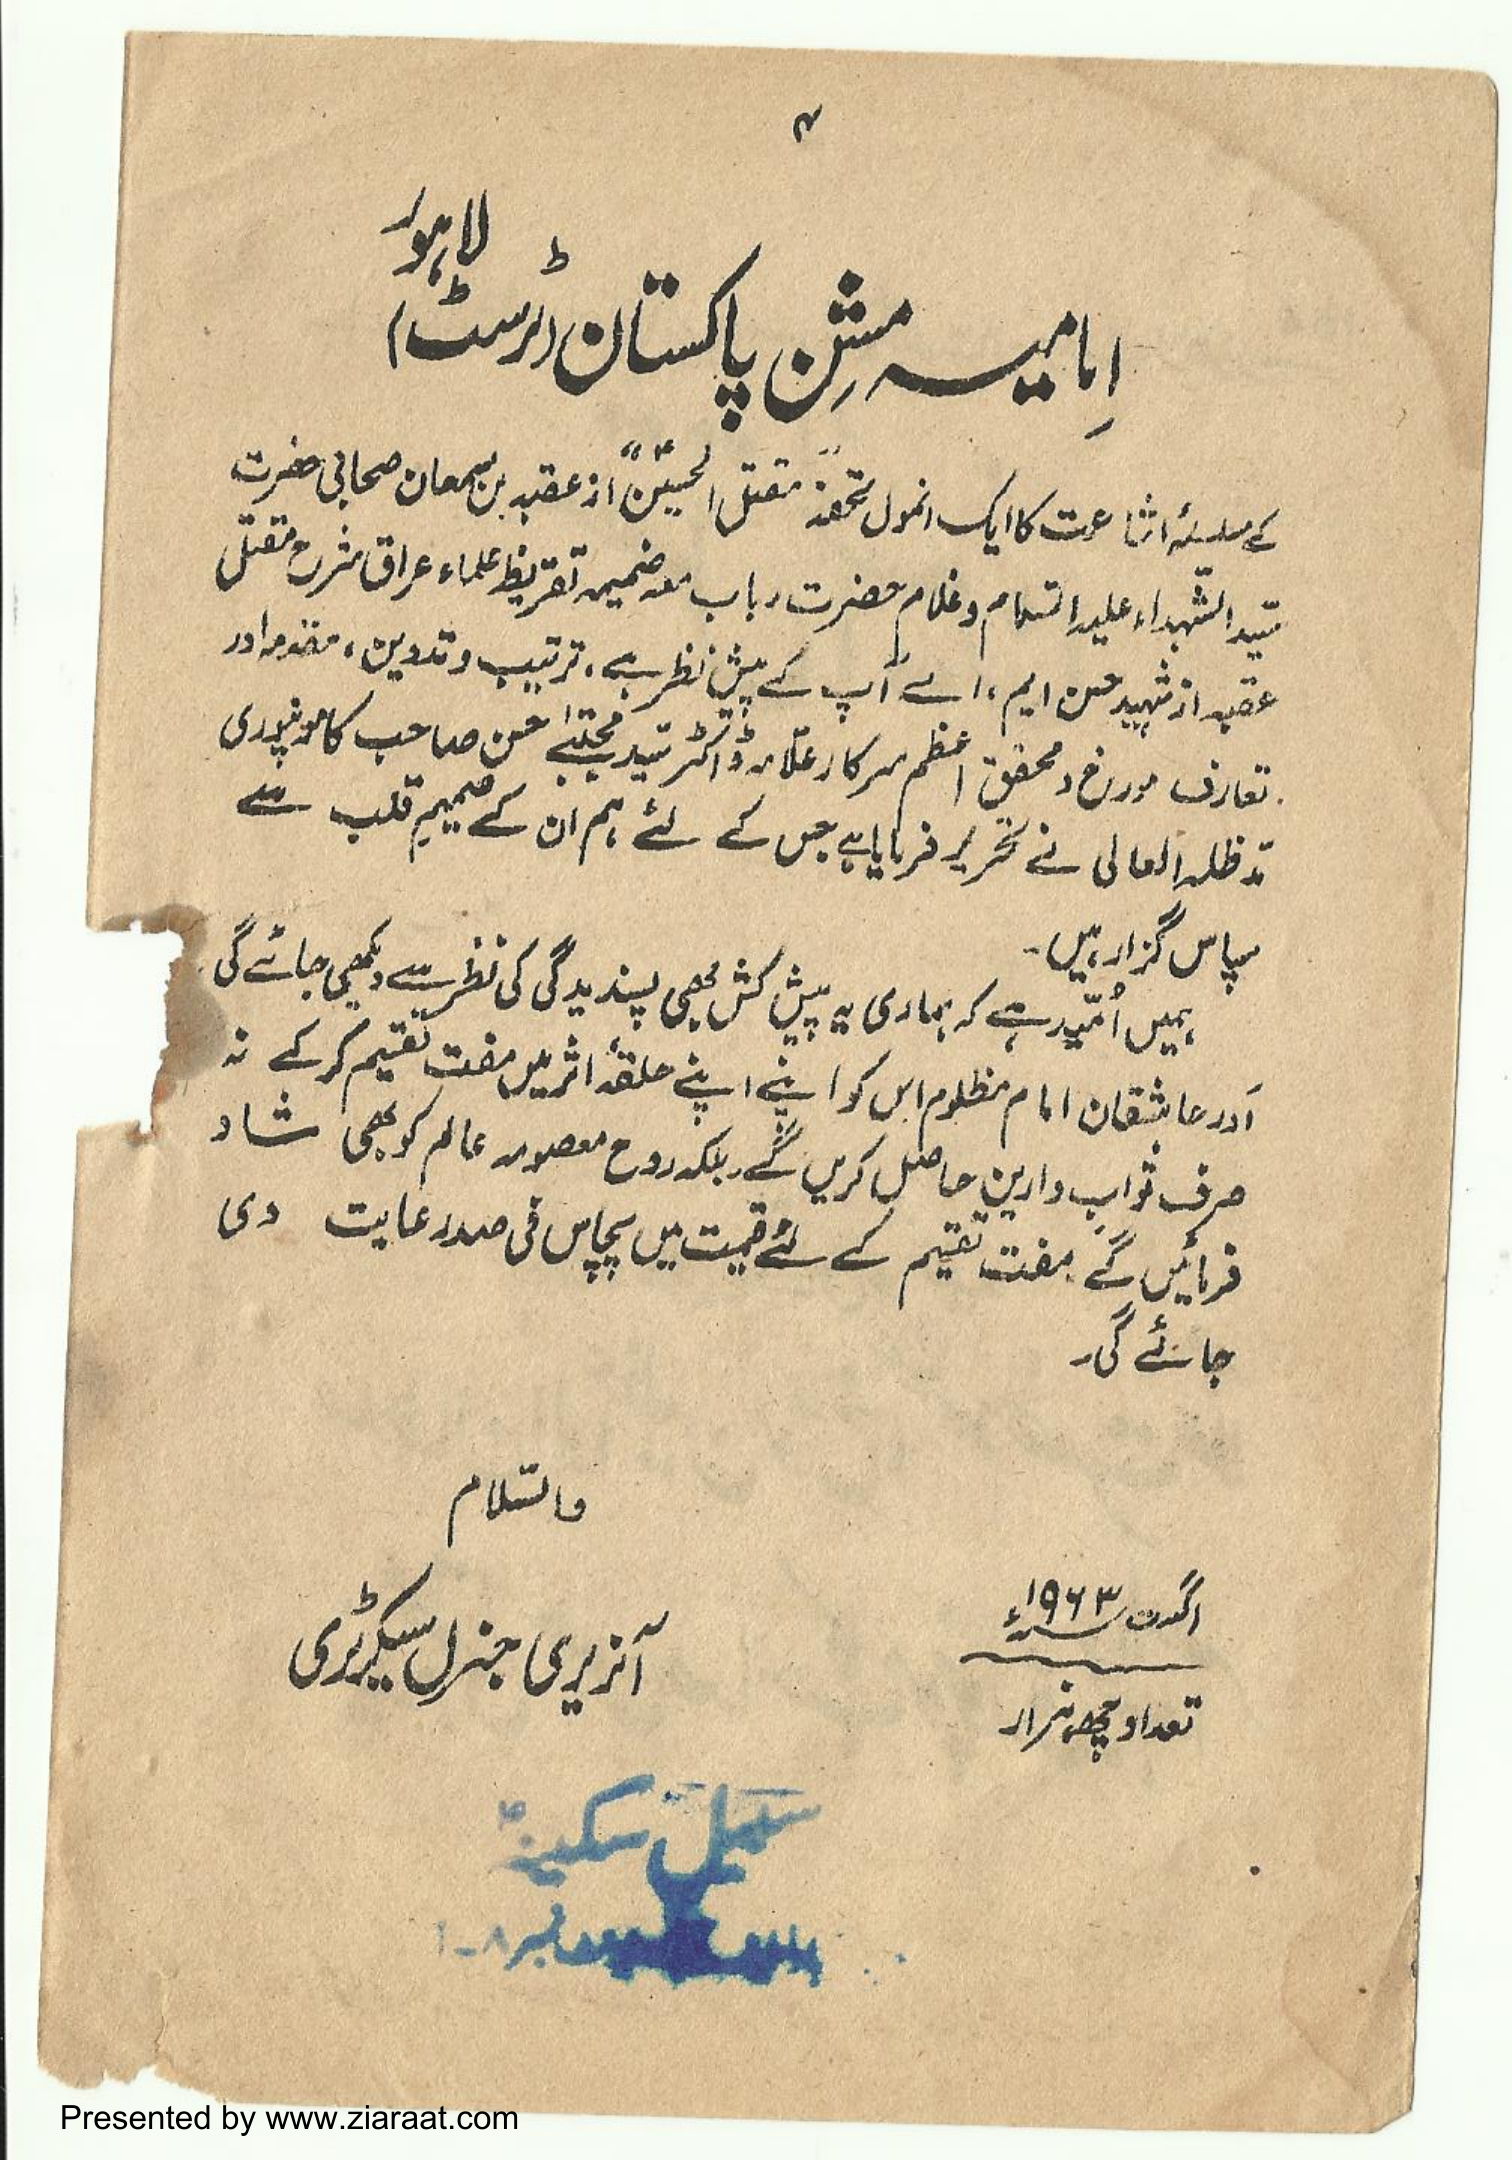 ۴
لاہور
اِمامیہ مشن پاکستان (ٹرسٹ)
کے سلسلۂ اشاعت کا ایک انمول تحفہ "مقتل الحسینؑ" از عقبہ بن سمعان صحابی حضرت
سیّد الشّہداء علیہ السّلام و غلام حضرت رباب معہ ضمیمہ تقریظ علماء عراق شرح مقتل
عقبہ از شہید حسن ایم، اے آپ کے پیش نظر ہے، ترتیب و تدوین، مقدمہ اور
تعارف مورخ و محقق اعظم سرکار علامہ ڈاکٹر سیّد مجتبےٰ حسن صاحب کامونپوری
مدّ ظلہ العالی نے تحریر فرمایا ہے جس کے لئے ہم ان کے صمیمِ قلب سے
سپاس گزار ہیں۔
ہمیں اُمّید ہے کہ ہماری یہ پیش کش بھی پسندیدگی کی نظر سے دیکھی جائے گی
اَور عاشقان امام مظلوم اس کو اپنے اپنے حلقۂ اثر میں مفت تقسیم کر کے نہ
صرف ثوابِ دارین حاصل کریں گے۔ بلکہ روح معصومہ عالم کو بھی شاد
فرمائیں گے۔ مفت تقسیم کے لئے قیمت میں پچاس فی صدر عایت دی
جائے گی۔
والسّلام
آنریری جنرل سیکرٹری
اگست ۱۹۶۳ء
تعداد چھ ہزار
سبیل سکینہؑ
نمبر ۸-۱
Presented by www.ziaraat.com